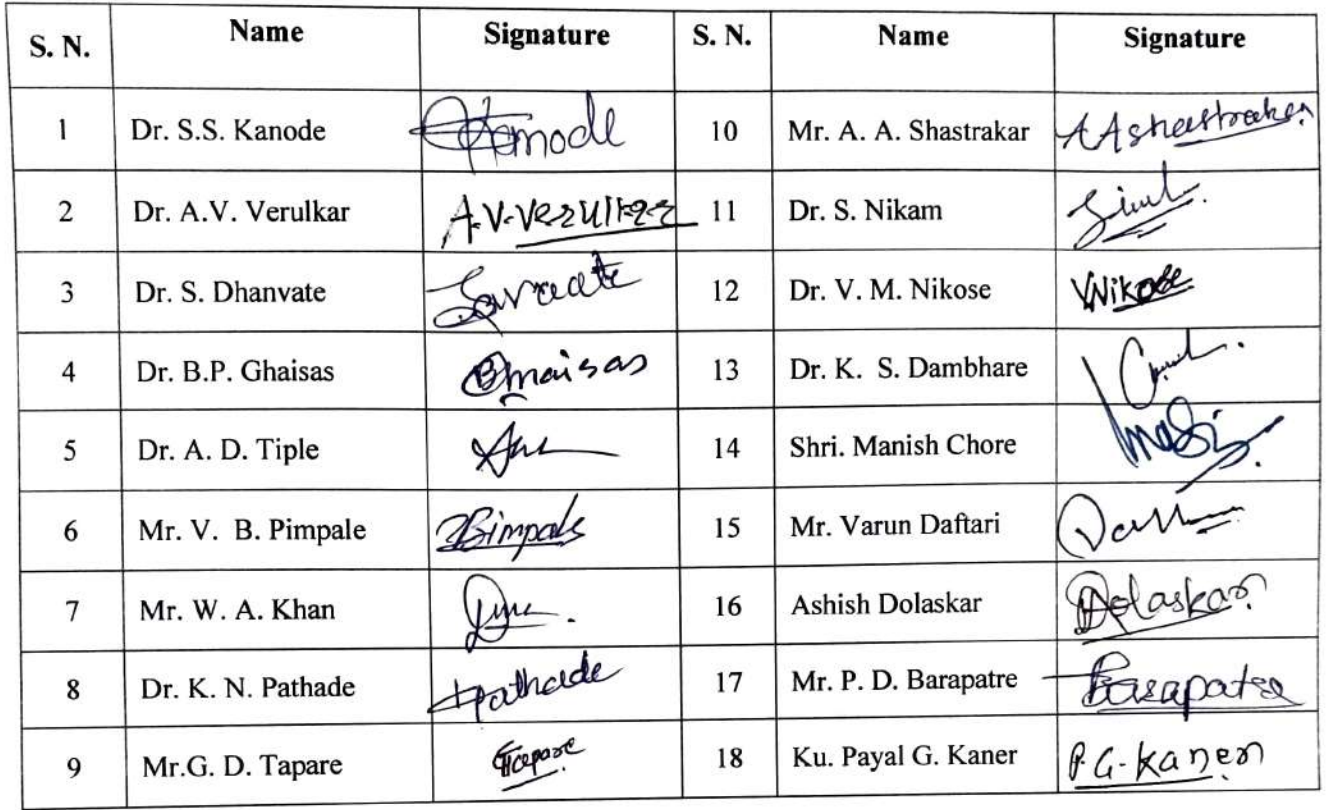 S. N. Name Signature S. N. Name Signature
1 Dr. S.S. Kanode 10 Mr. A. A. Shastrakar AAshastrakar
2 Dr. A.V. Verulkar A.V.Verulkar 11 Dr. S. Nikam
3 Dr. S. Dhanvate 12 Dr. V. M. Nikose VNikose
4 Dr. B.P. Ghaisas 13 Dr. K. S. Dambhare
5 Dr. A. D. Tiple 14 Shri. Manish Chore
6 Mr. V. B. Pimpale 15 Mr. Varun Daftari
7 Mr. W. A. Khan 16 Ashish Dolaskar Dolaskar
8 Dr. K. N. Pathade Pathade 17 Mr. P. D. Barapatre Barapatre
9 Mr.G. D. Tapare 18 Ku. Payal G. Kaner P.G-Kaner